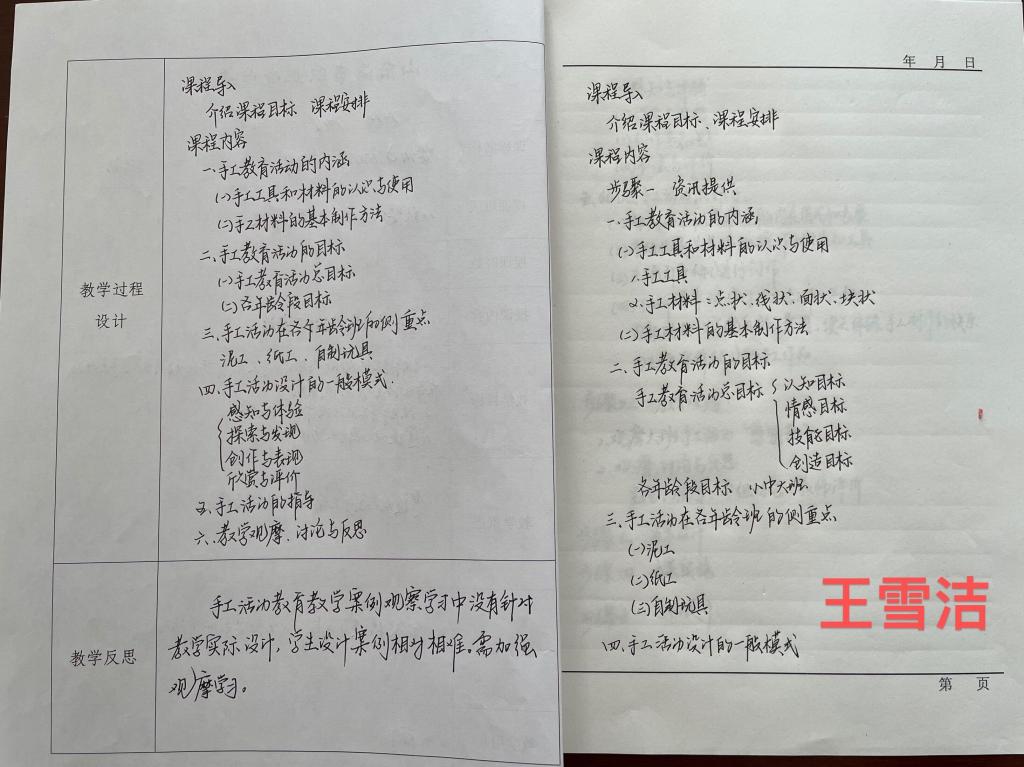 教学过程
设计
课程导入
介绍课程目标 课程安排
课程内容
一.手工教育活动的内涵
(一)手工工具和材料的认识与使用
(二)手工材料的基本制作方法
二.手工教育活动的目标
(一)手工教育活动总目标
(二)各年龄段目标
三.手工活动在各个年龄班的侧重点
泥工、纸工、自制玩具
四.手工活动设计的一般模式.
感知与体验
探索与发现
创作与表现
欣赏与评价
五.手工活动的指导
六.教学观摩、讨论与反思
教学反思
手工活动教育教学案例观察学习中没有针对
教学实际设计,学生设计案例相对相难。需加强
观摩学习。
年 月 日
课程导入
介绍课程目标、课程安排
课程内容
步骤一 资讯提供
一.手工教育活动的内涵
(一)手工工具和材料的认识与使用
1.手工工具
2.手工材料:点状、线状、面状、块状
(二)手工材料的基本制作方法
二.手工教育活动的目标
手工教育活动总目标 认知目标
情感目标
技能目标
创造目标
各年龄段目标 小中大班
三.手工活动在各年龄班的侧重点
(一)泥工
(二)纸工
(三)自制玩具
四.手工活动设计的一般模式
王雪洁
第 页